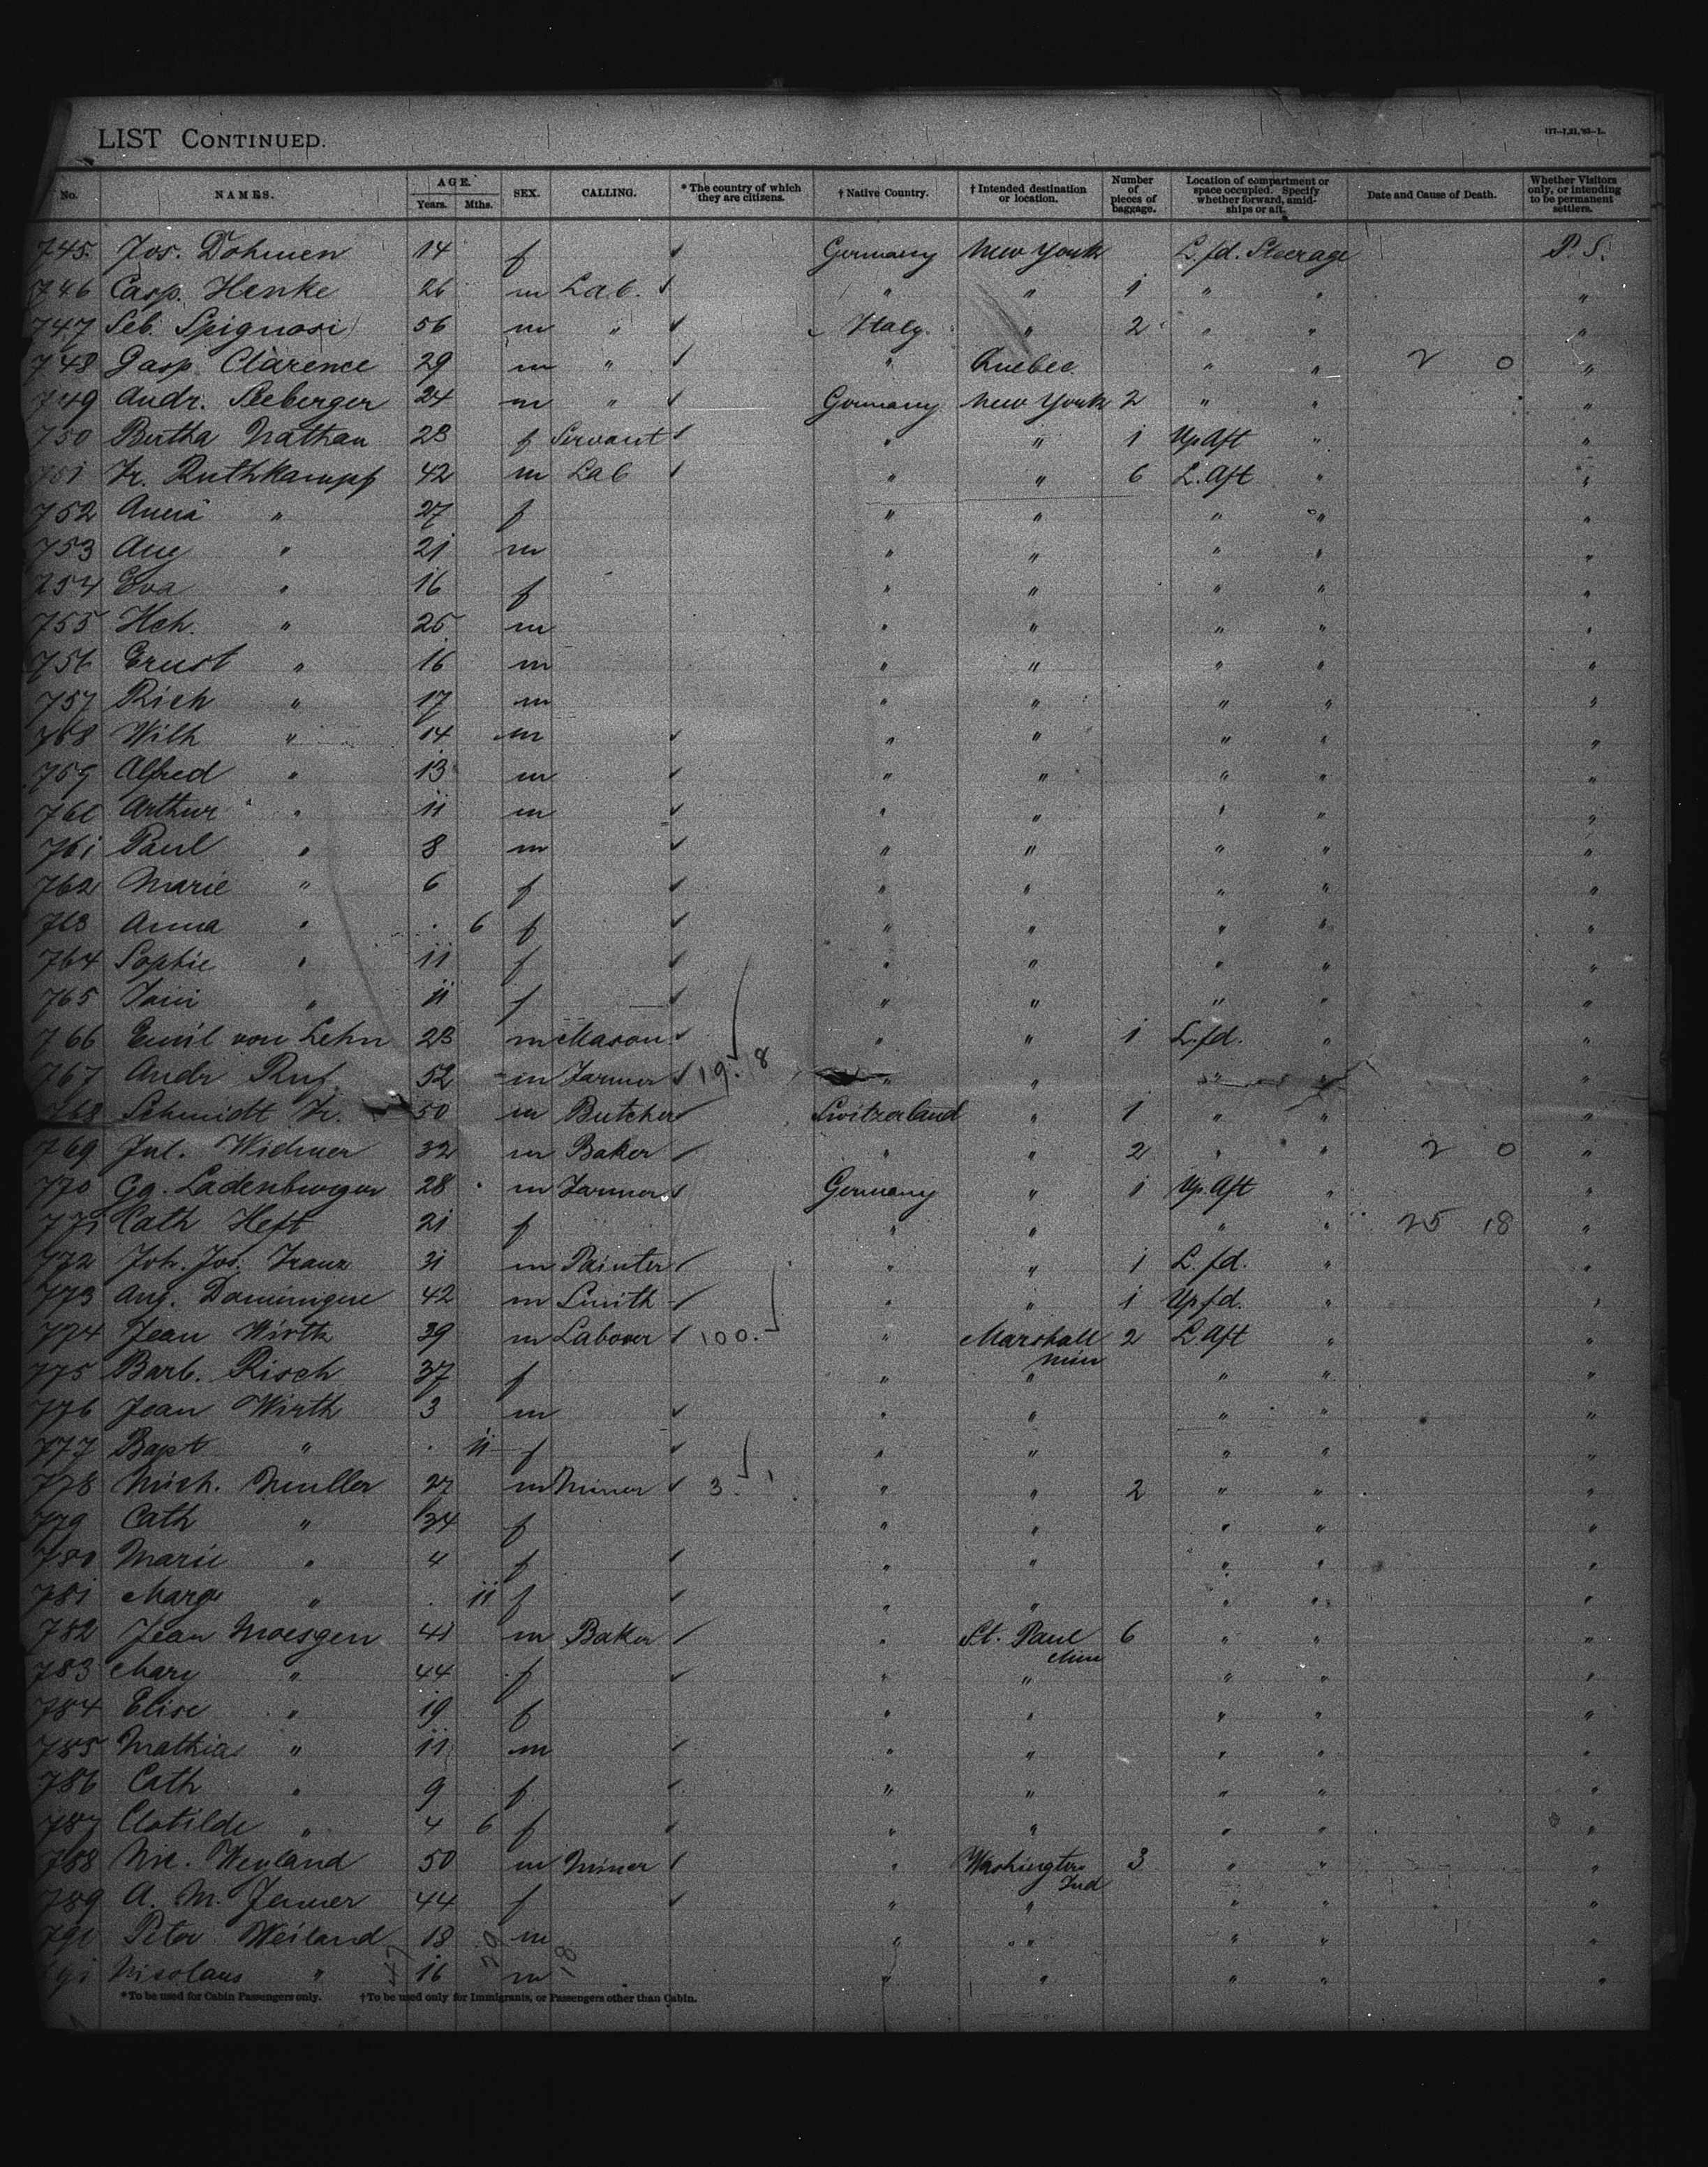 LIST CONTINUED.
117—1,21,'93—L.
No. NAMES. AGE. Years. Mths. SEX. CALLING. * The country of which they are citizens. † Native Country. † Intended destination or location. Number of pieces of baggage. Location of compartment or space occupied. Specify whether forward, amidships or aft. Date and Cause of Death. Whether Visitors only, or intending to be permanent settlers.
745. Jos. Dohmen 14 f ✓ Germany New York L. fd. Steerage P. S.
746 Casp. Henke 26 m Lab. ✓ " " 1 " " "
747 Seb. Spignosi 56 m " ✓ Italy. " 2 " " "
748 Gasp. Clarence 29 m " ✓ " Quebec. " " 2 0 "
749 Andr. Seeberger 24 m " ✓ Germany New York 2 " " "
750 Bertha Nathan 23 f Servant ✓ " " 1 Up Aft " "
751 Fr. Ruthkampf 42 m Lab ✓ " " 6 L. Aft " "
752 Anna " 27 f " " " " "
753 Aug " 21 m " " " " "
754 Eva " 16 f " " " " "
755 Hch. " 25 m " " " " "
756 Ernst " 16 m " " " " "
757 Rich " 17 m " " " " "
758 Wilh " 14 m ✓ " " " " "
759 Alfred " 13 m ✓ " " " " "
760 Arthur " 11 m ✓ " " " " "
761 Paul " 8 m ✓ " " " " "
762 Marie " 6 f ✓ " " " " "
763 Anna " . 6 f ✓ " " " " "
764 Sophie " 11 f ✓ " " " " "
765 " 11 f ✓ " " " " "
766 Emil von Lehn 23 m Mason ✓ " " 1 L. fd. " "
767 Andr Ruf. 52 m Farmer ✓ 19. 8 " " " " "
768 Schmidt Fr. 50 m Butcher ✓ Switzerland " 1 " " "
769 Jul. Widmer 32 m Baker ✓ " " 2 " " 2 0 "
770 Gg. Ladenburger 28 m Farmer ✓ Germany " 1 Up. Aft " "
771 Cath Heft 21 f " " " " 25 18 "
772 Joh. Jos. Franz 31 m Painter ✓ " " 1 L. fd. " "
773 Aug. Dominique 42 m Smith ✓ " " 1 Up fd. " "
774 Jean Wirth 39 m Labover ✓ 100. " Marshall 2 L. Aft " "
Minn
775 Barb. Risch 37 f " " " " "
776 Jean Wirth 3 m ✓ " " " " "
777 Bapt " . 11 f ✓ " " " " "
778 Mich. Muller 27 m Miner ✓ 3. " " 2 " " "
779 Cath " 34 f " " " " "
780 Marie " 4 f ✓ " " " " "
781 Marg " . 11 f ✓ " " " " "
782 Jean Moesgen 41 m Baker ✓ " St. Paul 6 " " "
Minn
783 Mary " 44 f ✓ " " " " "
784 Elise " 19 f " " " " "
785 Mathias " 11 m ✓ " " " " "
786 Cath " 9 f ✓ " " " " "
787 Clotilde " 4 6 f ✓ " " " " "
788 Nic. Weyland 50 m Miner ✓ " Washington 3 " " "
Ind
789 A. M. Jenner 44 f ✓ " " " " "
790 Peter Weiland 18 m " " " " "
791 Nicolaus " 16 m " " " " "
* To be used for Cabin Passengers only. † To be used only for Immigrants, or Passengers other than Cabin.